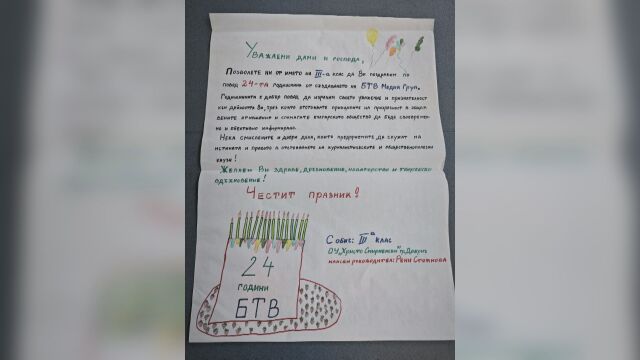 Уважаеми дами и господа,
Позволете ни от името на III-а клас да Ви поздравим по
повод 24-та годишнина от създаването на БТВ Медия Груп.
Годишнината е добър повод да изразим своето уважение и признателност
към дейността Ви, чрез която отстоявате принципите на прозрачност в общест
вените отношения и спомагате българското общество да бъде своевремен-
но и обективно информирано.
Нека смислените и добри дела, които предприемате, да служат на
истината и правото в отстояването на журналистическите и общественополезни
каузи!
Желаем Ви здраве, дръзновение, новаторство и творческо
вдъхновение!
Честит празник!
С обич: III а клас
ОУ „Христо Смирненски" гр.
класен ръководител: Рени Стоянова
24
години
БТВ